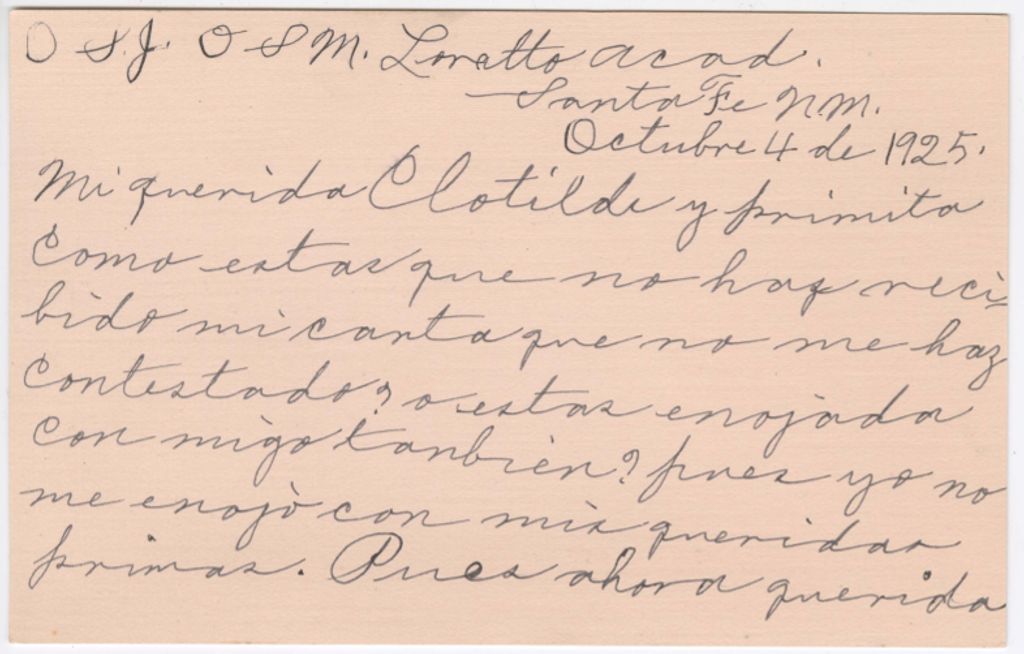 O S.J. O S M. Loretto Acad.
Santa Fe N.M.
Octubre 4 de 1925.
Mi querida Clotilde y primita
Como estas que no haz reci-
bido mi carta que no me haz
Contestado? o estas enojada
Con migo tanbièn? pues yo no
me enojò con mis queridas
primas. Pues ahora querida